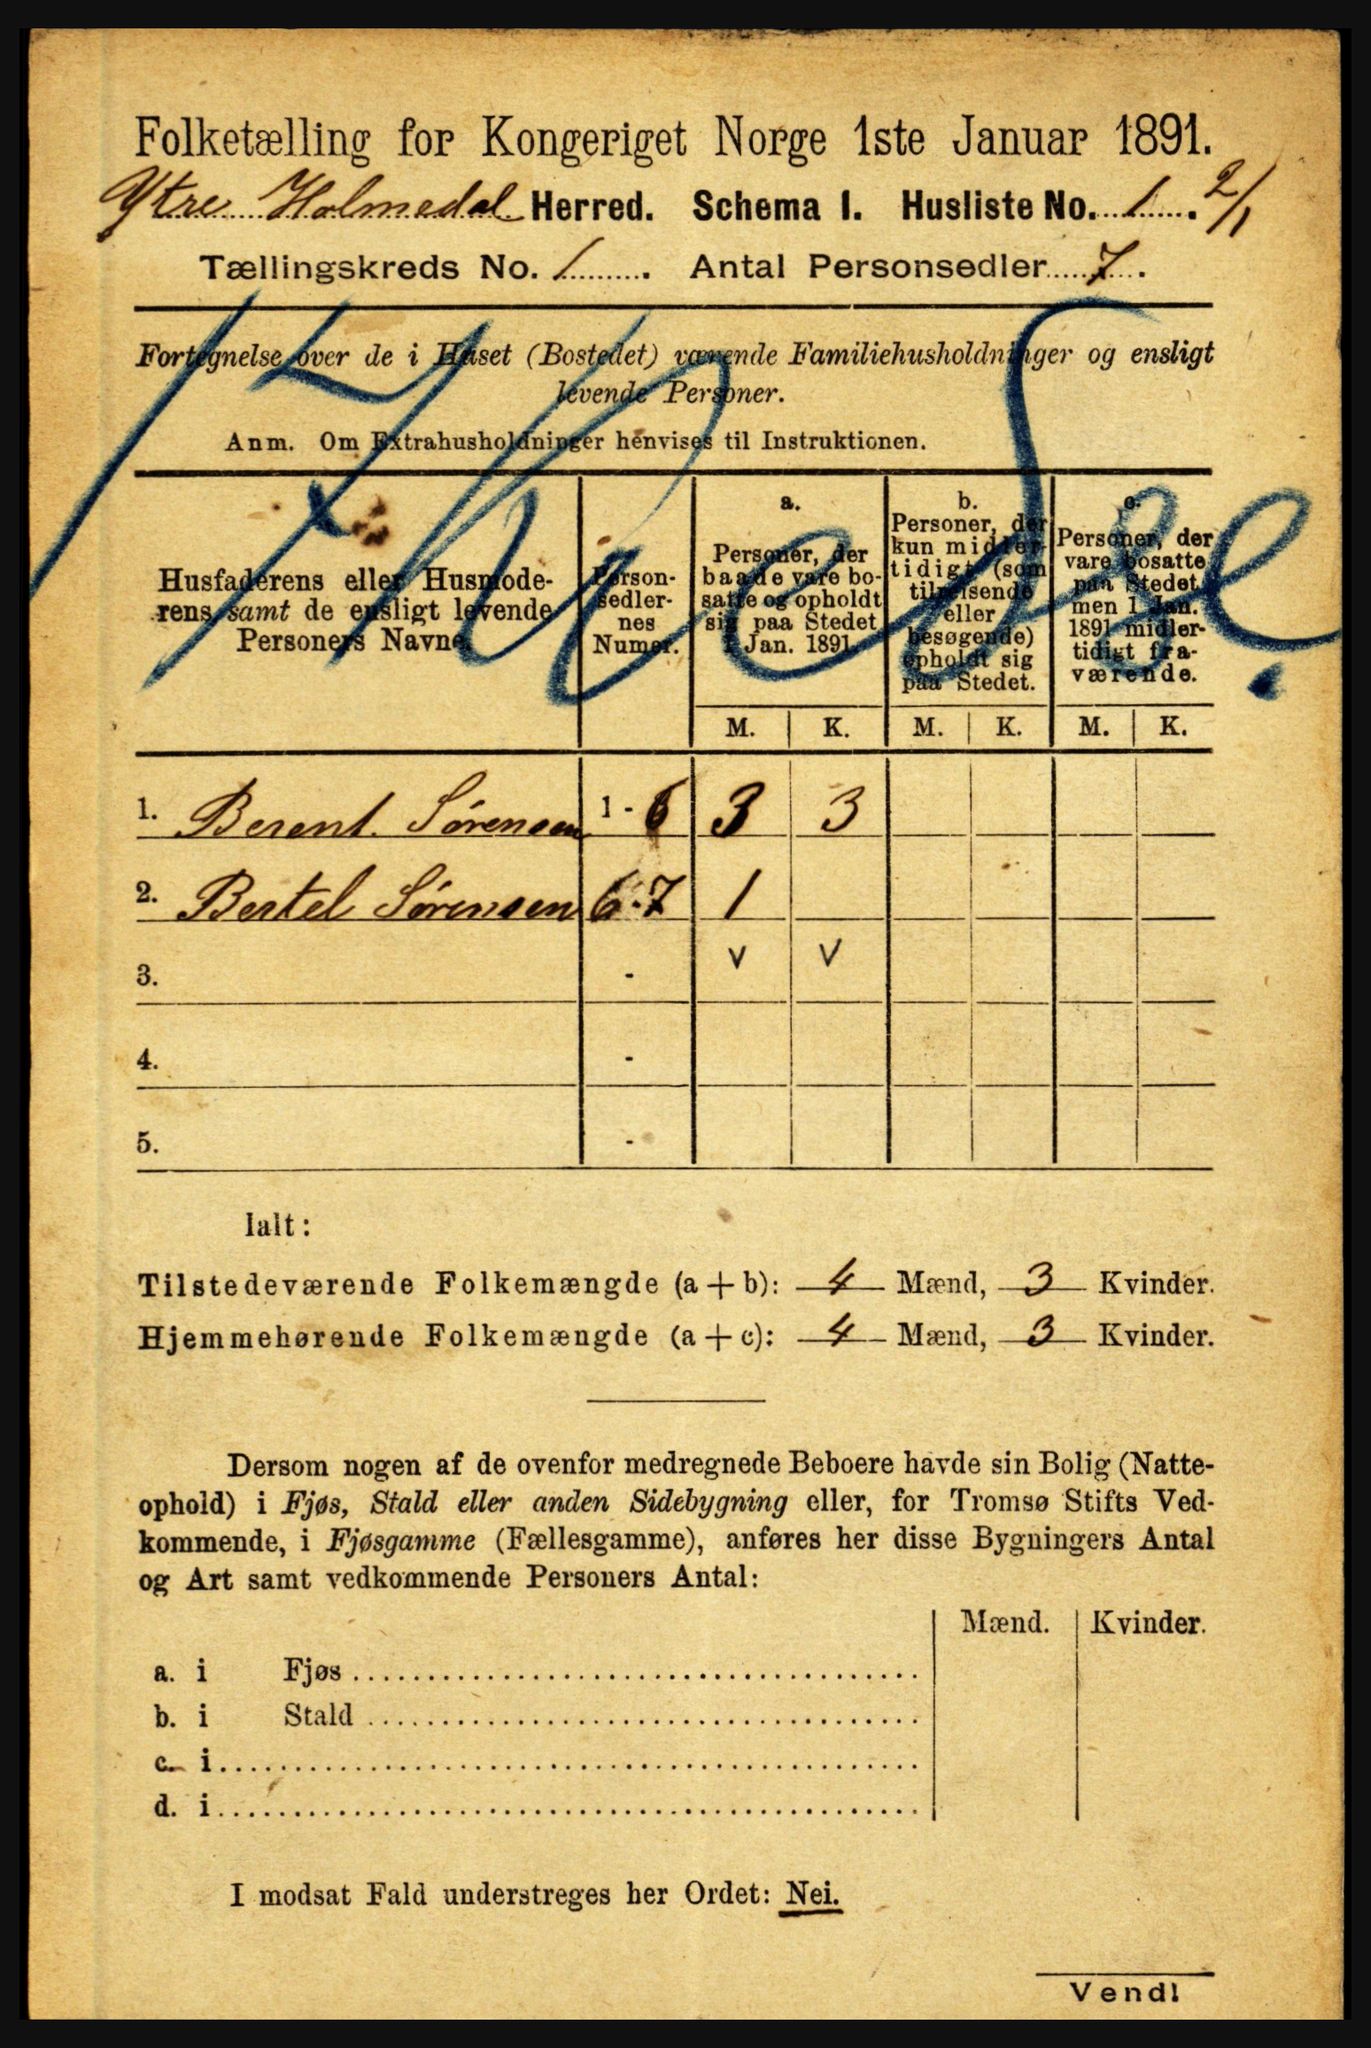 Folketælling for Kongeriget Norge 1ste Januar 1891.
Ytre Holmedal Herred. Schema I. Husliste No. 1. 2/1
Tællingskreds No. 1. Antal Personsedler 7.
Fortegnelse over de i Huset (Bostedet) værende Familiehusholdninger og ensligt
levende Personer.
Anm. Om Extrahusholdninger henvises til Instruktionen.
Husfaderens eller Husmode-
rens samt de ensligt levende
Personers Navne.
Person-
sedler-
nes
Numer.
a.
Personer, der
baade vare bo-
satte og opholdt
sig paa Stedet
1 Jan. 1891.
b.
Personer, der
kun midler-
tidigt (som
tilreisende
eller
besøgende)
opholdt sig
paa Stedet.
c.
Personer, der
vare bosatte
paa Stedet,
men 1 Jan.
1891 midler-
tidigt fra-
værende.
M. K. M. K. M. K.
1. Berent Sørensen 1 - 6 3 3
2. Bertel Sørensen 6 - 7 1
3. - v v
4. -
5. -
Ialt:
Tilstedeværende Folkemængde (a + b): 4 Mænd, 3 Kvinder.
Hjemmehørende Folkemængde (a + c): 4 Mænd, 3 Kvinder.
Dersom nogen af de ovenfor medregnede Beboere havde sin Bolig (Natte-
ophold) i Fjøs, Stald eller anden Sidebygning eller, for Tromsø Stifts Ved-
kommende, i Fjøsgamme (Fællesgamme), anføres her disse Bygningers Antal
og Art samt vedkommende Personers Antal:
Mænd. Kvinder.
a. i Fjøs
b. i Stald
c. i
d. i
I modsat Fald understreges her Ordet: Nei.
Vend!